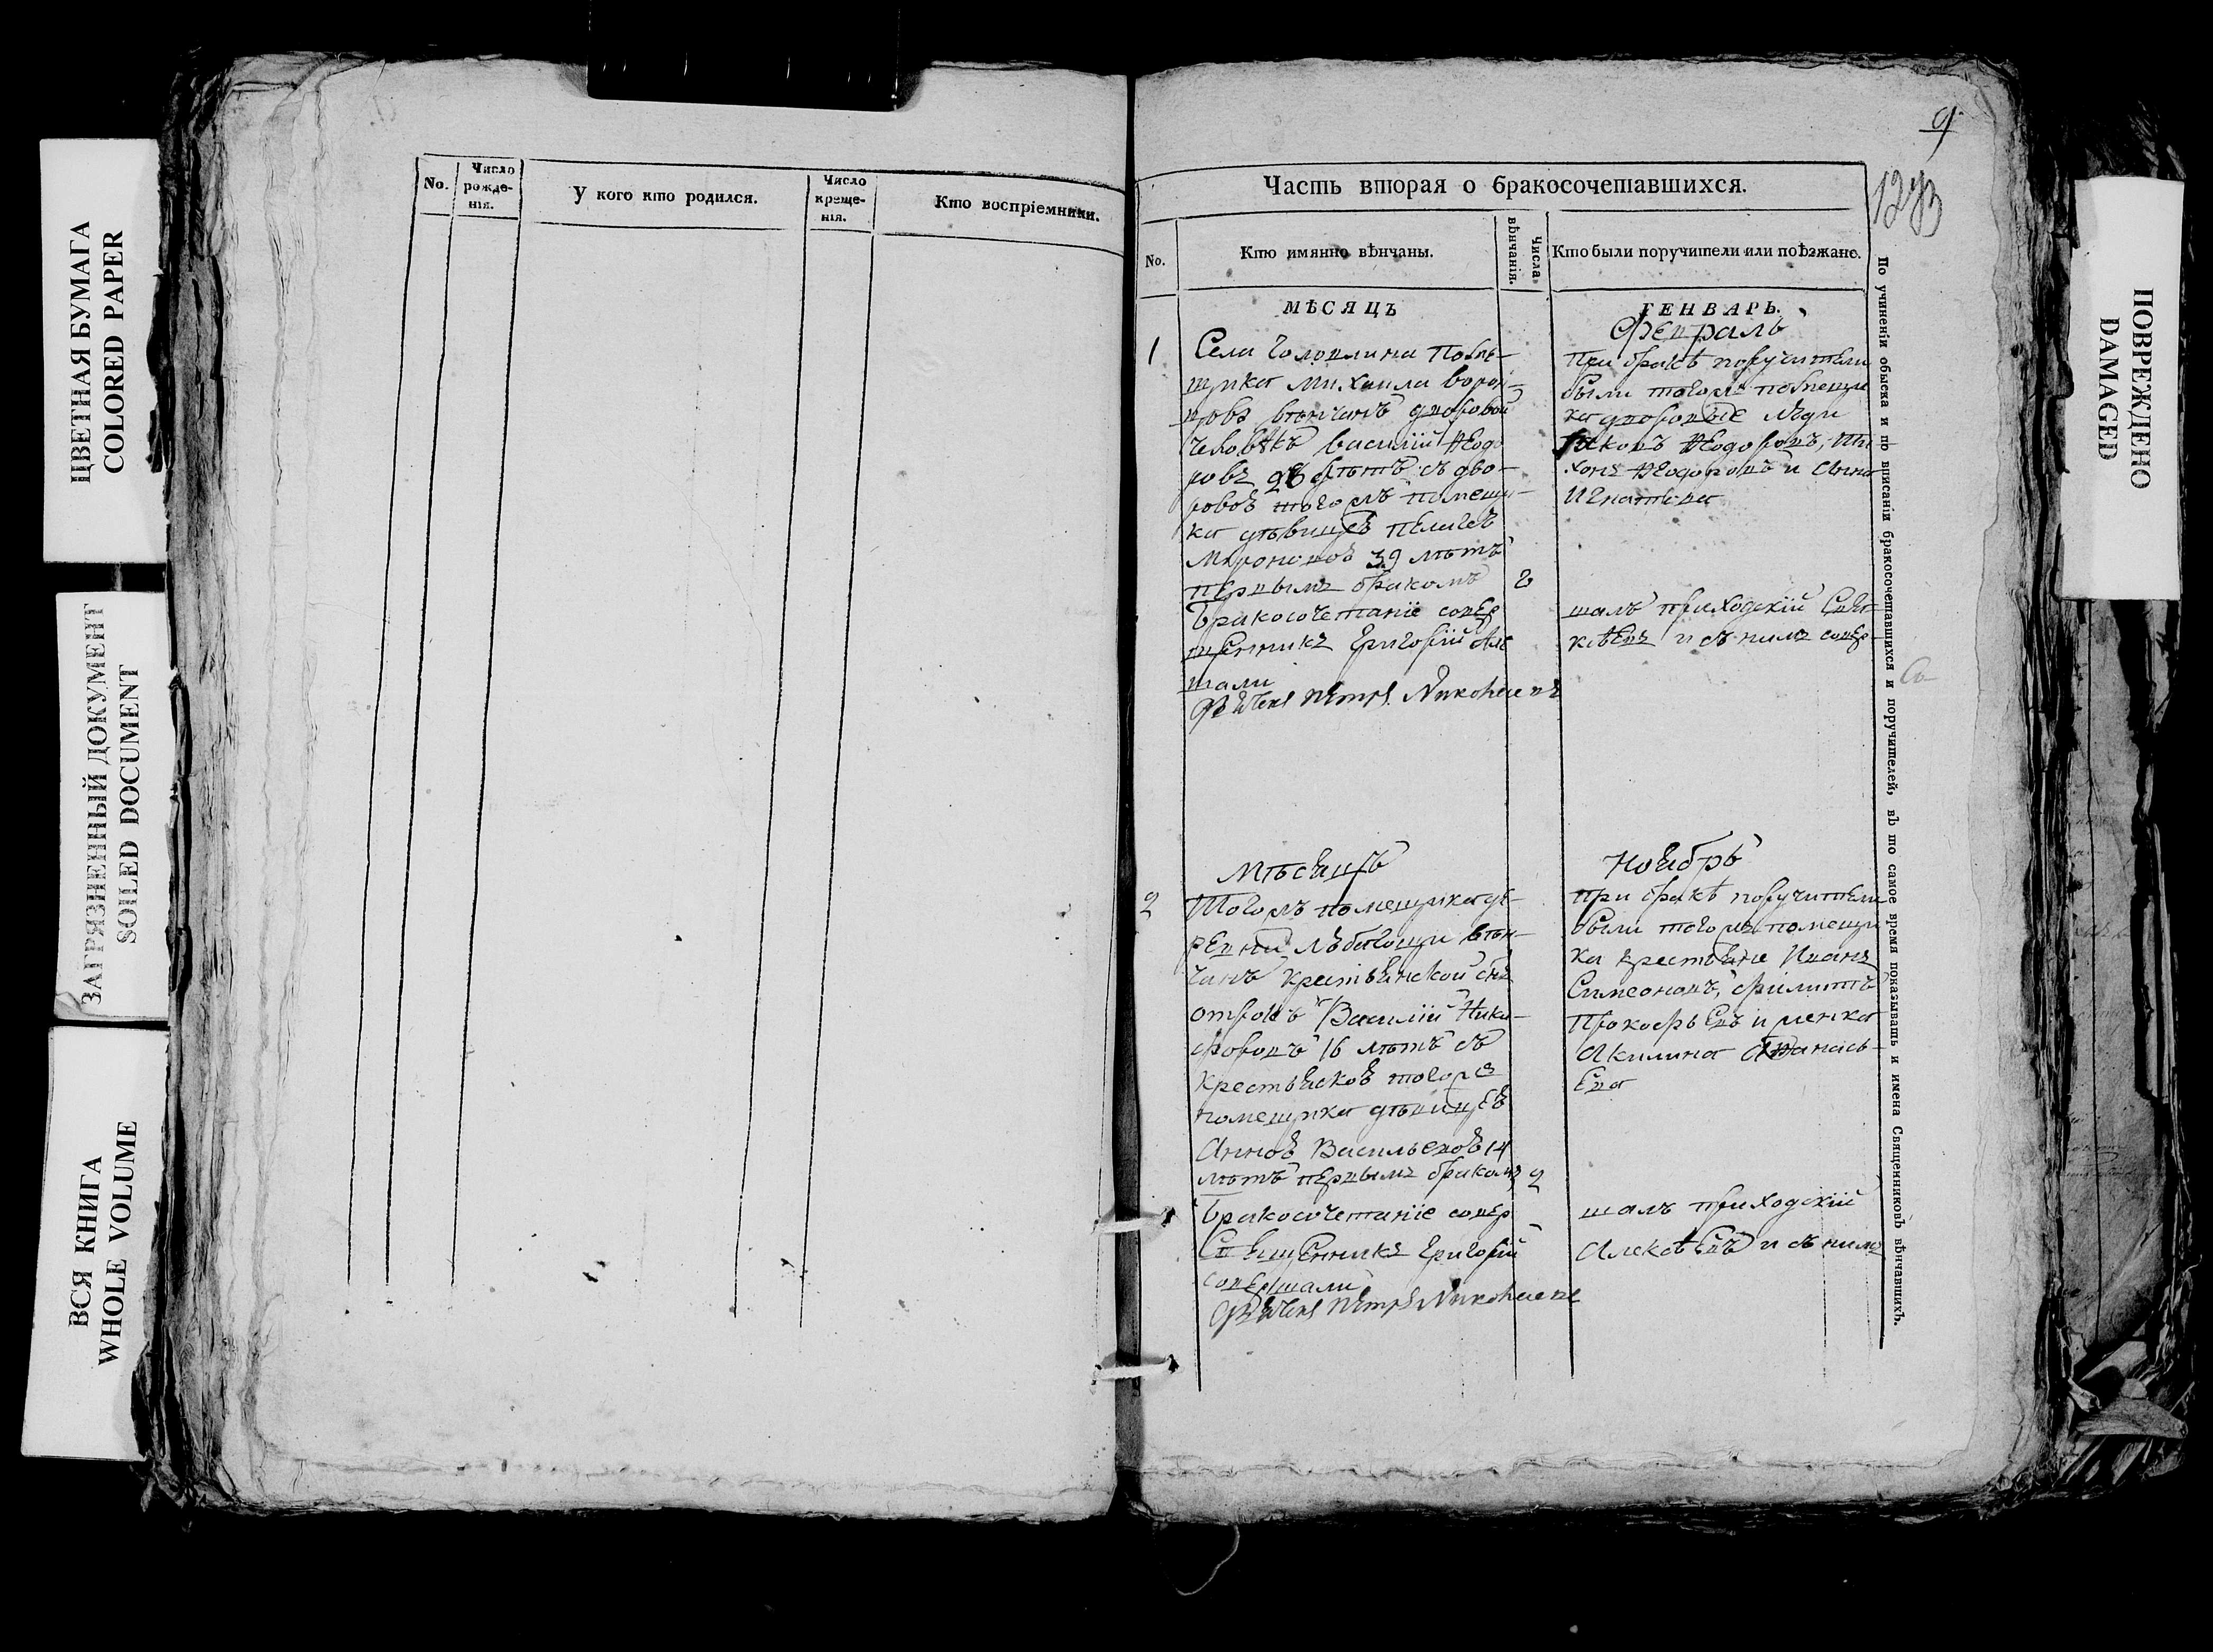 ЦВЕТНАЯ БУМАГА
COLORED PAPER
ЗАГРЯЗНЕННЫЙ ДОКУМЕНТ
SOILED DOCUMENT
ВСЯ КНИГА
WHOLE VOLUME
No.
Число рожде-нія.
У кого кто родился.
Число креще-нія.
Кто воспріемники.
9
Часть вторая о бракосочетавшихся.
No.
Кто имянно вѣнчаны.
Числа вѣнчанія.
Кто были поручители или поѣзжане.
МѢСЯЦЪ
ГЕНВАРЬ.
Февраль
1
Села Головлина помѣ-
щика Михаила
вѣнчанъ дворовой
человѣкъ Василій Ѳеодо
ровъ 28 лѣтъ съ дво-
ровоѣ тогожъ помещи-
ка дѣвицеѣ Пелагеѣ
Мироновоѣ 39 лѣтъ
первымъ бракомъ
Бракосочетаніе совер
щенникъ Григорій Але
шали
Петръ Николаевъ
При бракѣ поручители
были тогожъ помещи
ка дворовые люди
Яковъ Ѳеодоровъ, Ти
хонъ Ѳеодоровъ и Анна
Игнатьева
шалъ приходскій Свя
ксѣевъ и съ нимъ совер
Мѣсяцъ
Ноябрь
2
Тогожъ помещика де
ревни вѣн-
чанъ крестьянской сынъ
отрокъ Василій Ники-
форовъ 16 лѣтъ съ
крестьяскоѣ тогожъ
помещика дѣвицеѣ
Анноѣ Васильевоѣ 14
лѣтъ первымъ бракомъ 2
Бракосочетаніе совер
Священникъ Григорій
совершали
Петръ Николаевъ
при бракѣ поручители
были тогожъ помещи
ка крестьяне Иванъ
Симеоновъ, Филиппъ
Прокофьевъ и женка
Акилина Аѳанась-
ева
шалъ приходскій
Алексѣевъ и съ нимъ
По учиненіи обыска и по вписаніи бракосочетавшихся и поручителей, въ то самое время показывать и имена Священниковъ вѣнчавшихъ.
ПОВРЕЖДЕНО
DAMAGED